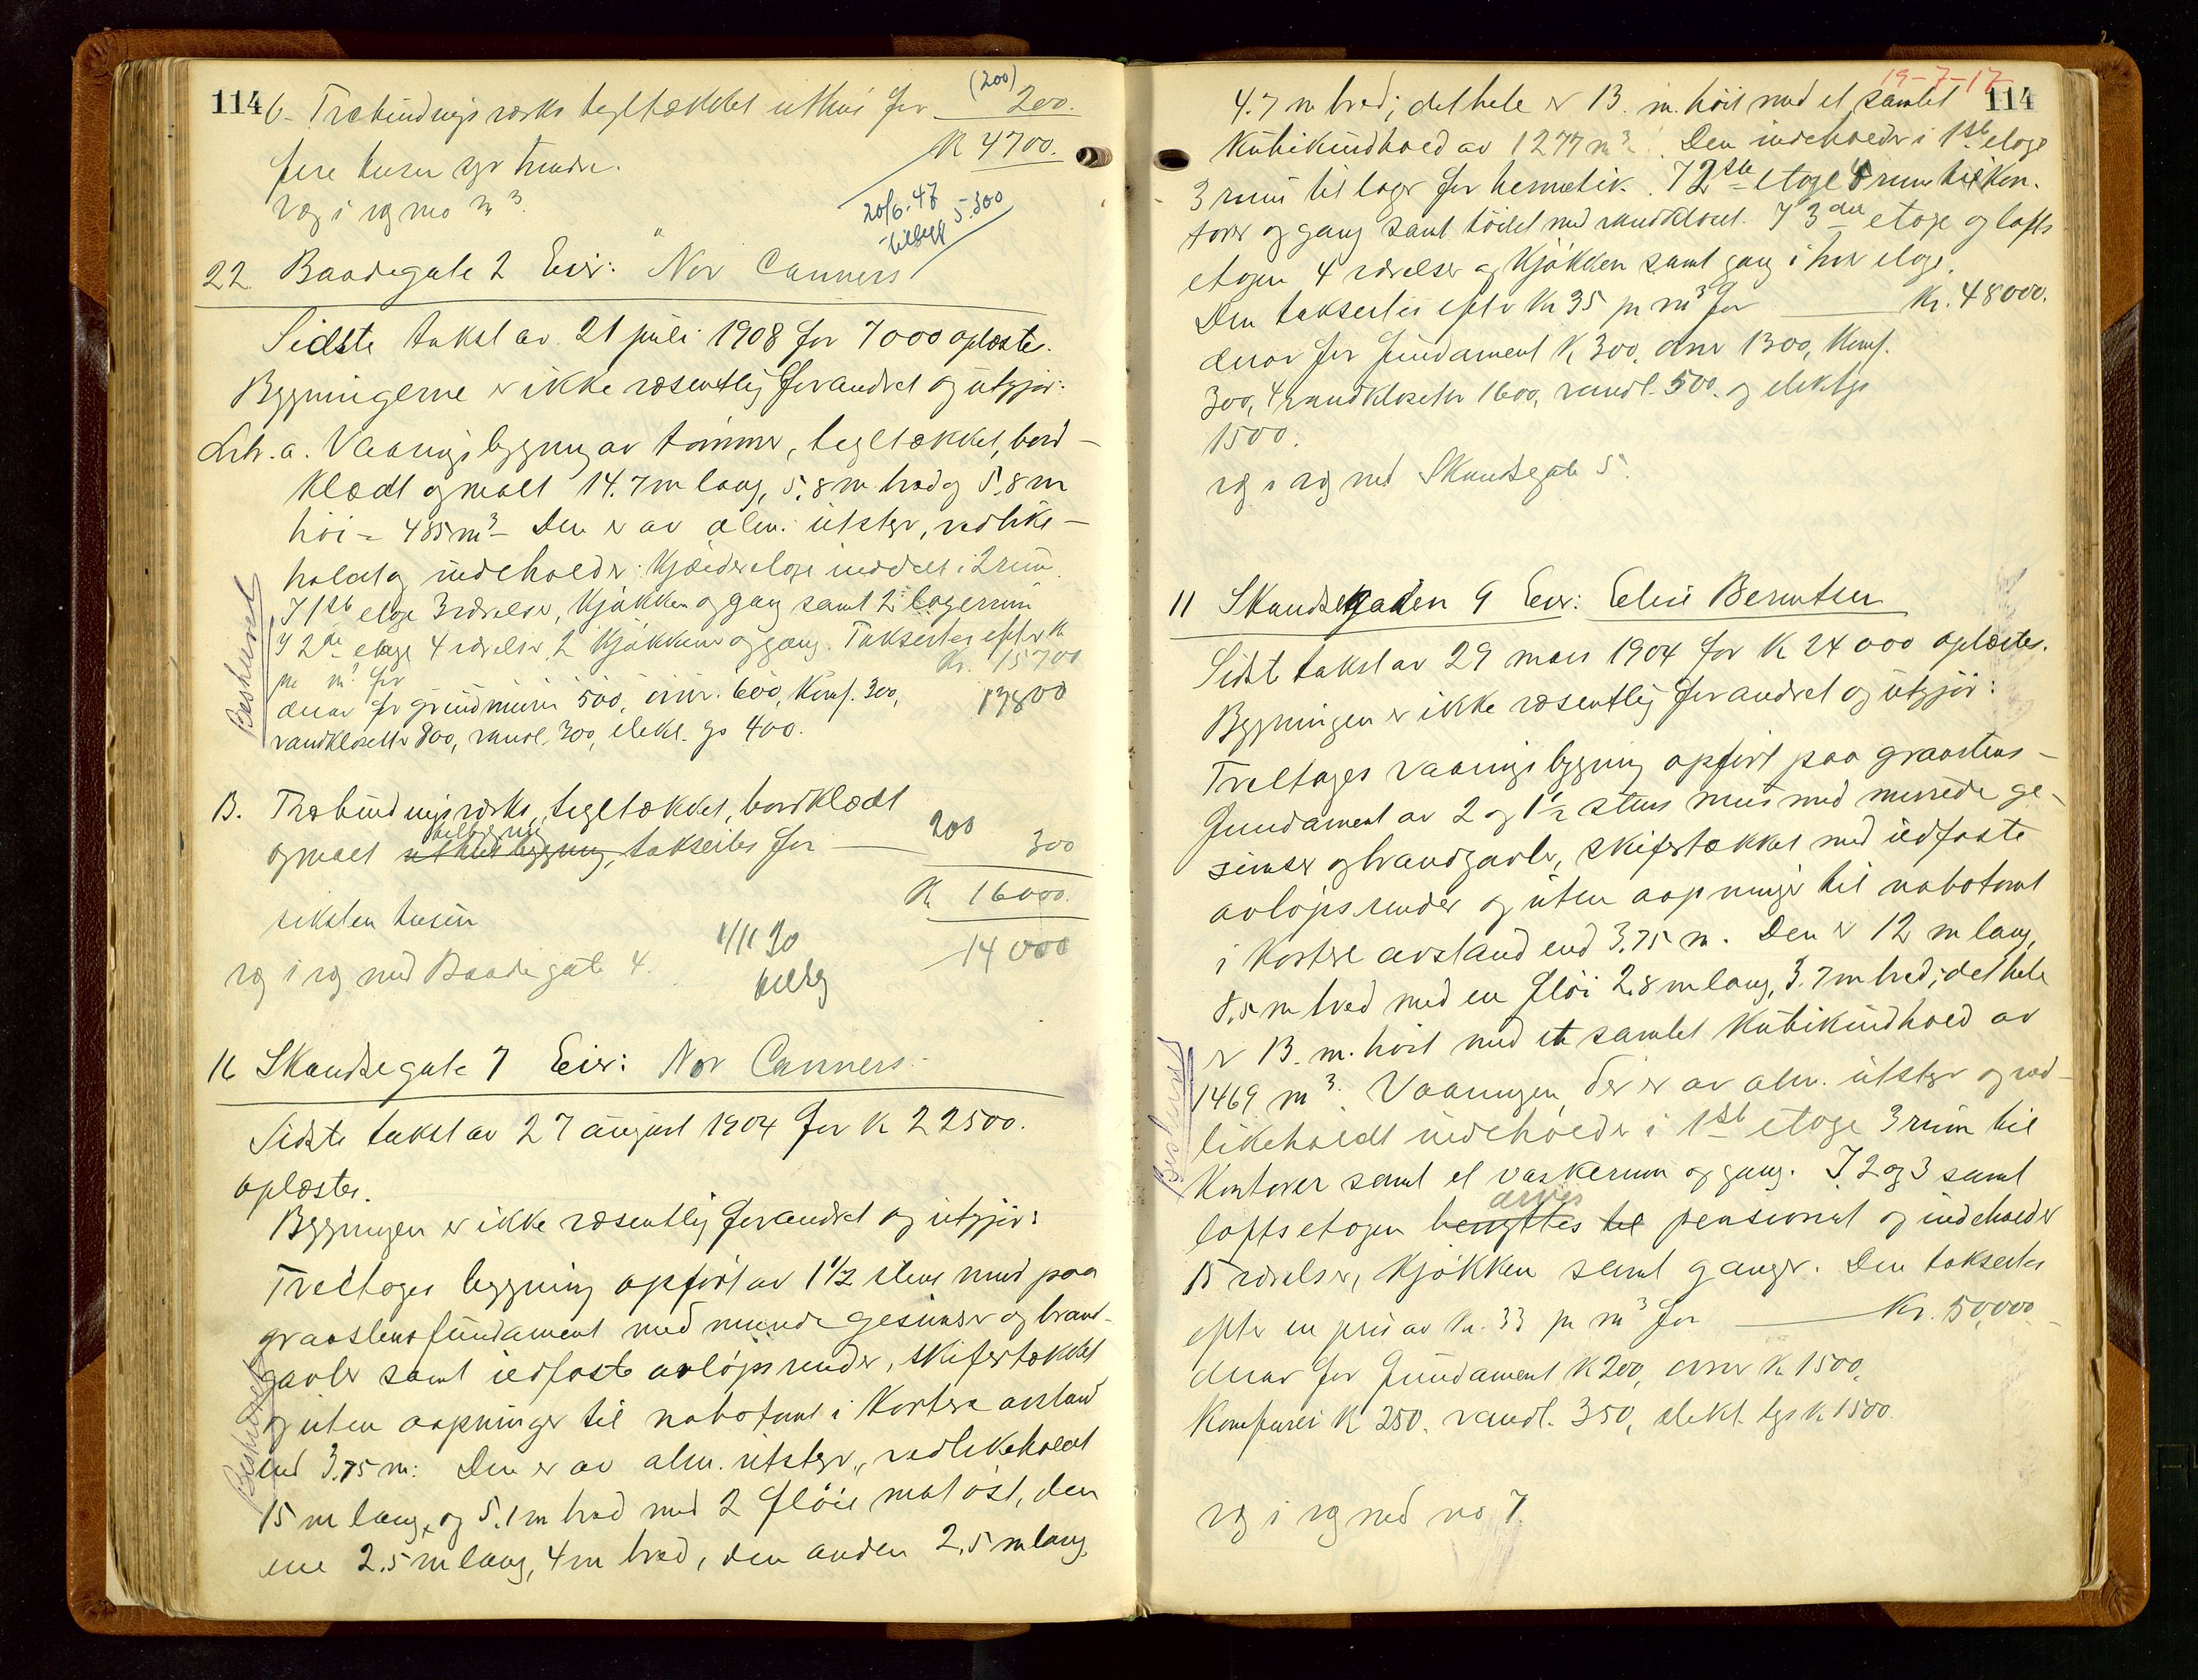 114
b. Træbindingsverks tegltækket uthus for (200) 200.
K 4700.
fire tusen syv hundre.
væg i væg mo n 3.
20/6.47 5.300
tilbygg
22 Baadegate 2 Eier: "Nor Canners
Sidste takst av 21 juli 1908 for 7000 oplæstes.
Bygningerne er ikke væsentlig forandret og utgjør:
Litr. a. Vaaningsbygning av tømmer, tegltækket, bord-
klædt og malt 14.7 m lang, 5.8 m bred og 5.8 m
høi = 485 m3 - Den er av alm. utstyr, vedlike-
holdt og indeholder: Kjælderetage inddelt i 2 rum.
I 1ste etage 3 værelser, kjøkken og gang samt 2 lagerrum
I 2de etage 4 værelser, 2 kjøkkener og gang. Takseres efter K
pr m3 for Kr. 15700
derav for grundmurer 500, ovner. 600, Komf. 300, 13800
vandklosetter 800, vandl. 300, elekt. gs 400.
Beskrevet
B. Træbindingsverks, tegltækket, bordklædt
tilbygning
og malt uthusbygning, takseres for 200 300
K 16000.
seksten tusen
1/11 30
14000
væg i væg med Baadegate 4.
tilbyg
16 Skandsegate 7 Eier: Nor Canners.
Sidste takst av 27 august 1904 for K 22500.
oplæstes.
Bygningen er ikke væsentlig forandret og utgjør:
Treetages bygning opført av 1 1/2 stens mur paa
graastensfundament med murede gesimser og brand-
gavler samt ildfaste avløpsrender, skifertækket
og uten aapninger til nabotomt i kortere avstand
end 3.75 m: Den er av alm. utstyr, vedlikeholdt
15 m lang, og 5.1 m bred med 2 fløie mot øst, den
ene 2.5 m lang, 4 m bred, den anden 2.5 m lang,
Beskrevet
19-7-17
114
4.7 m bred; det hele er 13. m. høit med et samlet
kubikindhold av 1277 m3. Den indeholder i 1ste etage
3 rum til lager for hermetik. I 2den etage 4 rum til kon-
torer og gang samt toilet med vandkloset. I 3die etage og lofts
etagen 4 værelser og kjøkken samt gang i hver etage.
Den takseres efter Kr 35 pr m3 for Kr. 48000.
derav for fundament K 300, ovner 1300, Komf.
300, 4 vandklosetter 1600, vandl. 500. og elektr. lys
1500.
væg i væg med Skandsegate 5.
11 Skandsegaden 9 Eier: Berentsen
Sidste takst av 29 mars 1904 for K 24000 oplæstes.
Bygningen er ikke væsentlig forandret og utgjør:
Treetages vaaningsbygning opført paa graastens-
fundament av 2 og 1 1/2 stens mur med murede ge-
simser og brandgavler, skifertækket med ildfaste
avløpsrender og uten aapninger til nabotomt
i kortere avstand end 3.75 m. Den er 12 m lang,
8.5 m bred med en fløi 2.8 m lang, 3.7 m bred; det hele
er 13. m. høit med et samlet kubikindhold av
1469 m3. Vaaningen, der er av alm. utstyr og ved-
likeholdt indeholder i 1ste etage 3 rum til
kontorer samt et vaskerum og gang. I 2 og 3 samt
drives
loftsetagen benyttes til pensionat og indeholder
15 værelser, kjøkken samt ganger. Den takseres
efter en pris av Kr. 33 pr m3 for Kr. 50000
derav for fundament K 200, ovner K 1500,
Komfurer K 250. vandl. 350, elekt. lys K 1500.
Beskrevet
væg i væg med no 7.